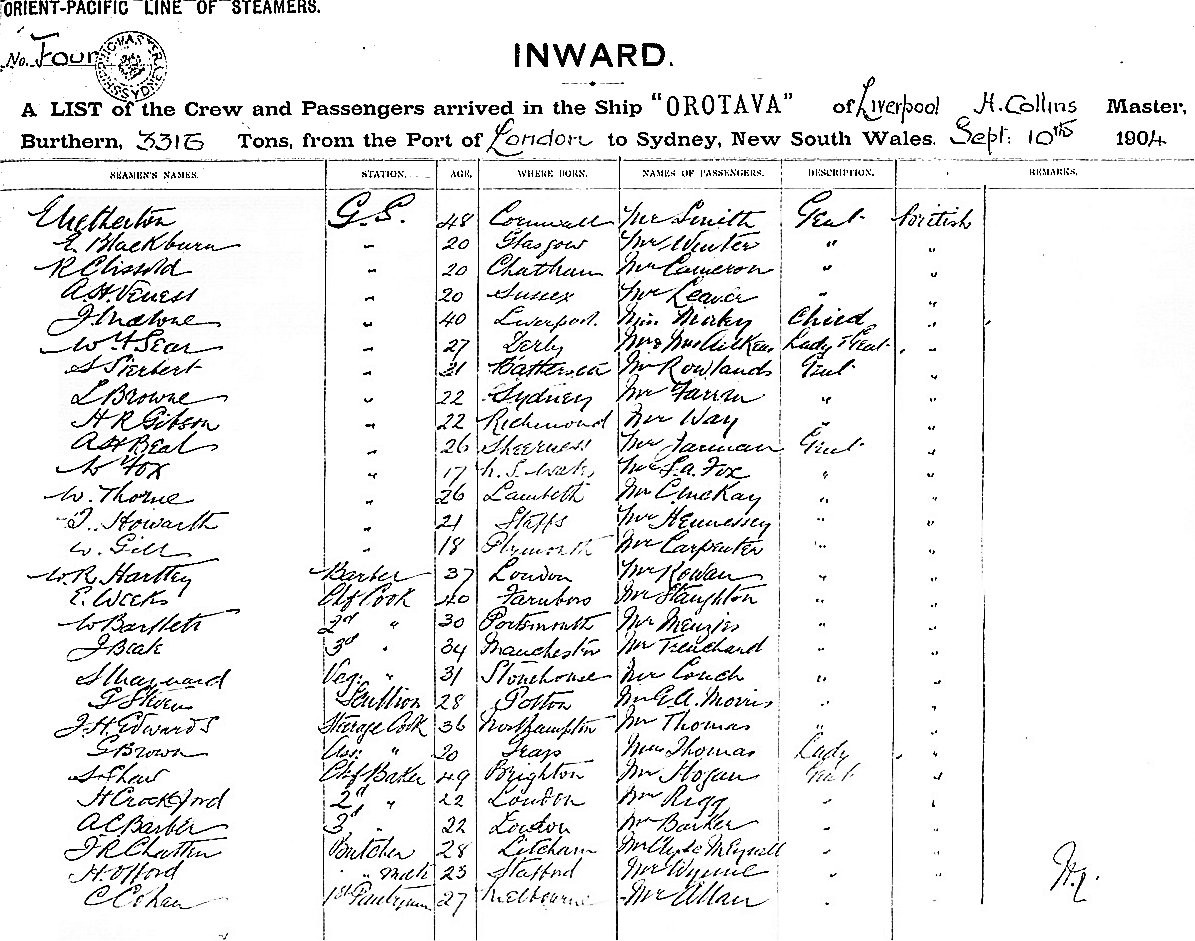 ORIENT-PACIFIC LINE OF STEAMERS.
No. Four
INWARD.
A LIST of the Crew and Passengers arrived in the Ship "OROTAVA" of Liverpool H. Collins Master,
Burthern, Tons, from the Port of London to Sydney, New South Wales. Sept: 10th 1904
SEAMEN'S NAMES. STATION. AGE, WHERE BORN. NAMES OF PASSENGERS. DESCRIPTION. REMARKS.
G.S. 48 Cornwall Mr Smith Gent British
E. Blackburn " 20 Glasgow Mr Winter " "
R Clissold " 20 Chatham Mr Cameron " "
A H Veness " 20 Sussex Mr Leaver " "
J. Malone " 40 Liverpool. Miss Child "
" 27 Derby Lady & Gent "
S Herbert " 21 Battersea Mr Rowlands Gent "
L Browne " 22 Sydney Mr " "
H R Gibson " 22 Richmond Mr Way " "
A H Beal " 26 Sheerness Mr Gent "
W Fox " 17 N. S. Wales Mr Fox " "
W. Thorne " 26 Lambeth Mr C. McKay " "
Howarth " 21 Staffs Mr Hennessey " "
W. Gill " 18 Plymouth Mr Carpenter " "
W. R. Hartley Barber 37 London Mr Rowan " "
E. Weeks Chf Cook 40 Farnboro Mr Staughton " "
W Bartlett 2d " 30 Portsmouth Mr Menzies " "
J Beak 3d " 34 Manchester Mr Trenchard " "
S Maynard Veg: " 31 Stonehouse Mr Couch " "
Steven Scullion 28 Potton Mr E. A. Morris " "
J. H. Edwards Steerage Cook 36 Northampton Mr Thomas " "
G Brown Ass: " 20 Grays Thomas Lady "
S Shaw Chf Baker 49 Brighton Mr Hogan Gent "
H Crockford 2d " 22 London Mr Rigg " "
A C Barber 3d " 22 London Mr Barker " "
Butcher 28 Mr Clyde Meynell " "
H. Offord " mate 23 Stafford Mr Wynne " "
C Cohan 1st Pantryman 27 Melbourne Mr Allan " "